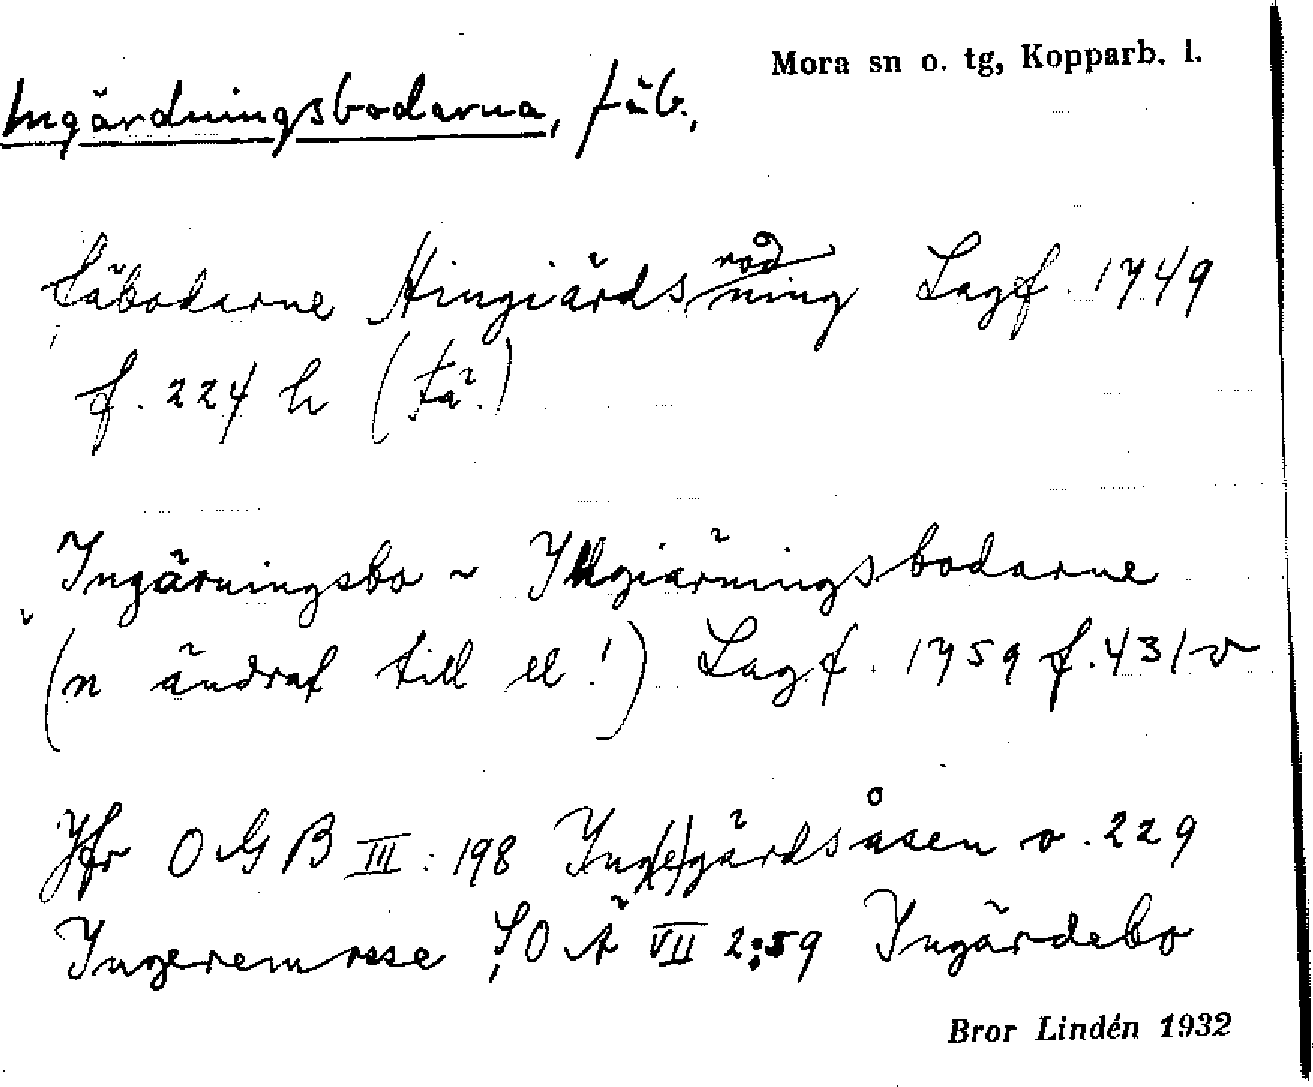 Mora sn o. tg, Kopparb. l.
Ingärdningsbodarna, fäb.,
fäbodarne Hingiärdsning Lagf. 1749
f. 224 h (fä.)
Ingärningsbo ~ Ingiärningsbodarne
(n ändrat till ll!) Lagf. 1759 f. 431 v
Jfr OGB III: 198 Ing(e)gärdsåsen o. 229
Ingeremosse, SOÄ VII 2:59 Ingärdebo
Bror Lindén 1932